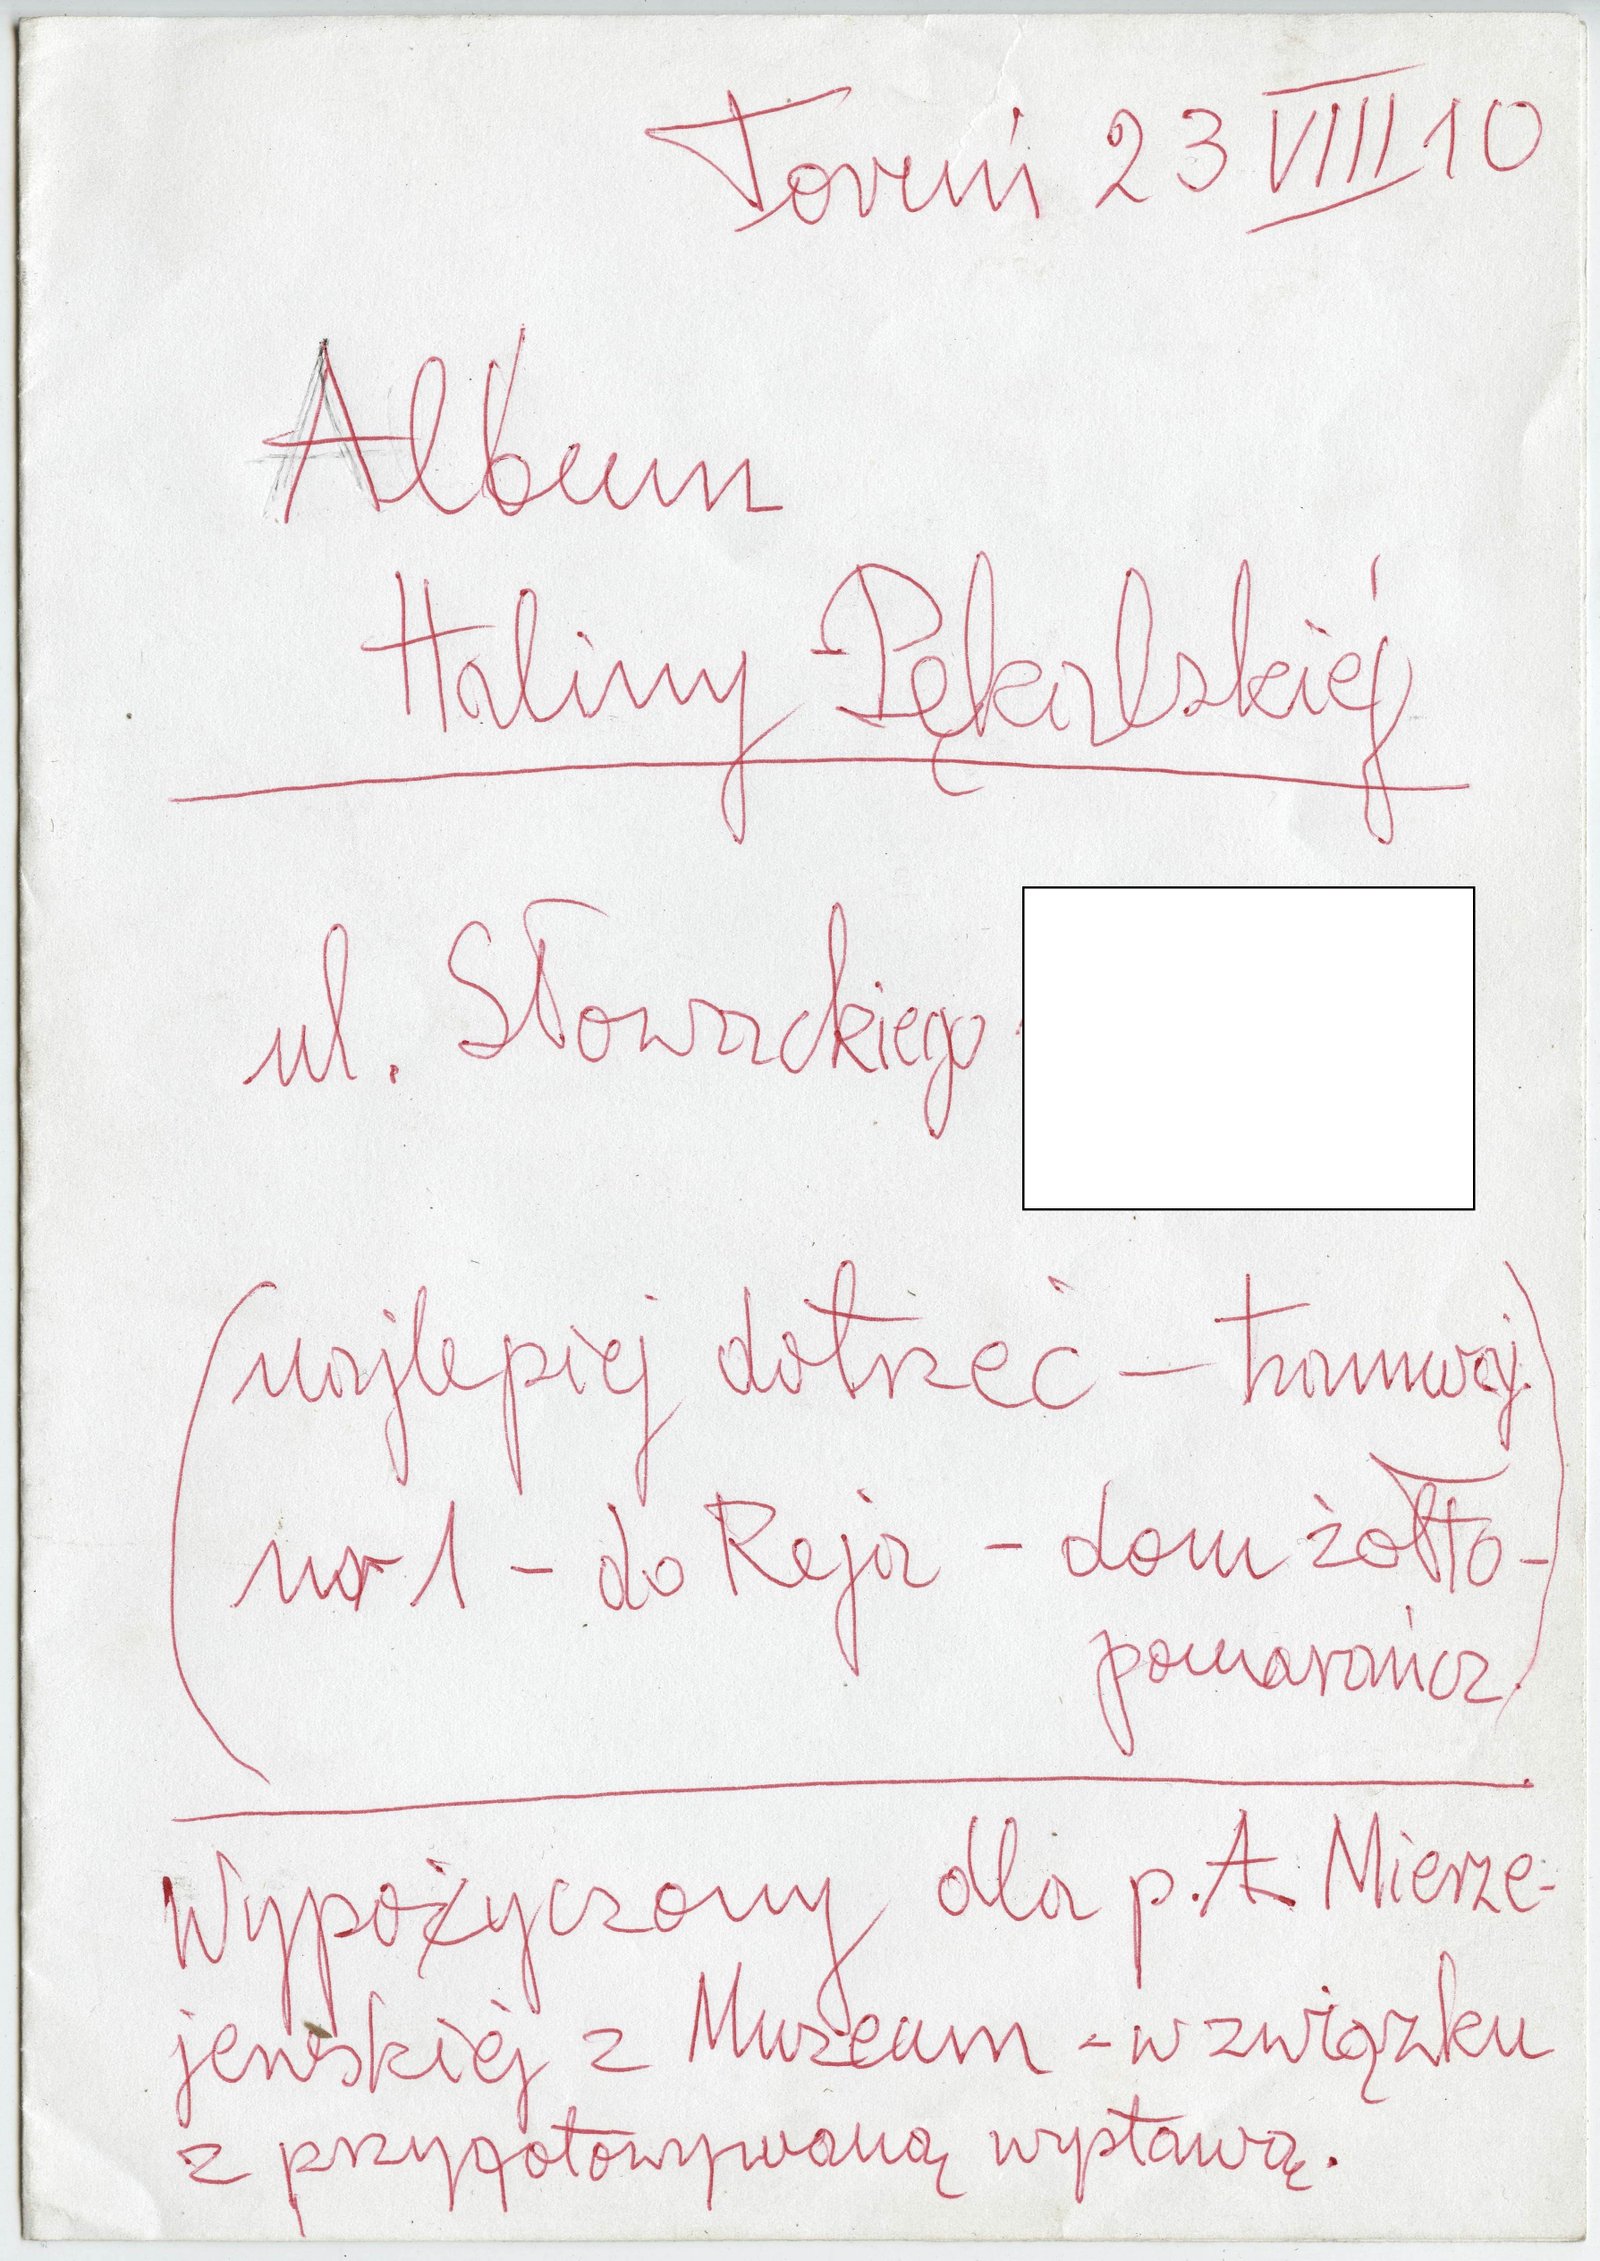 Toruń 23 VIII 10
Album
Haliny Pękalskiej
ul. Słowackiego
(najlepiej dotrzeć – tramwaj.
nr 1 – do Reja – dom żółto-
pomarańcz.)
Wypożyczony dla p. A. Mierze-
jewskiej z Muzeum – w związku
z przygotowywaną wystawą.